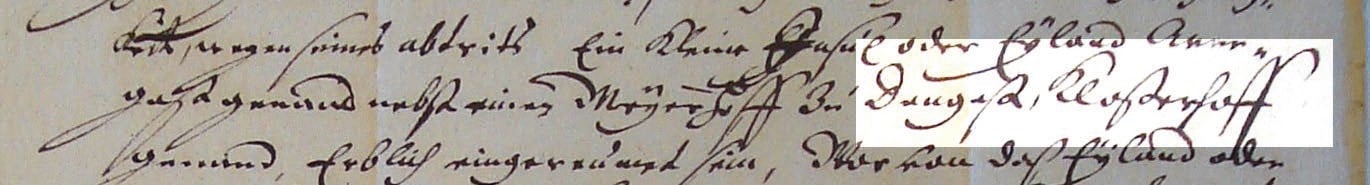 wegen seines abtrits Ein Kleine Insul oder Eyland Aren-
gast genand nebst einen Meyerhoff zu Dangast, Klosterhoff
genand, Erblich eingereumet sein, Wor von daß Eyland oder